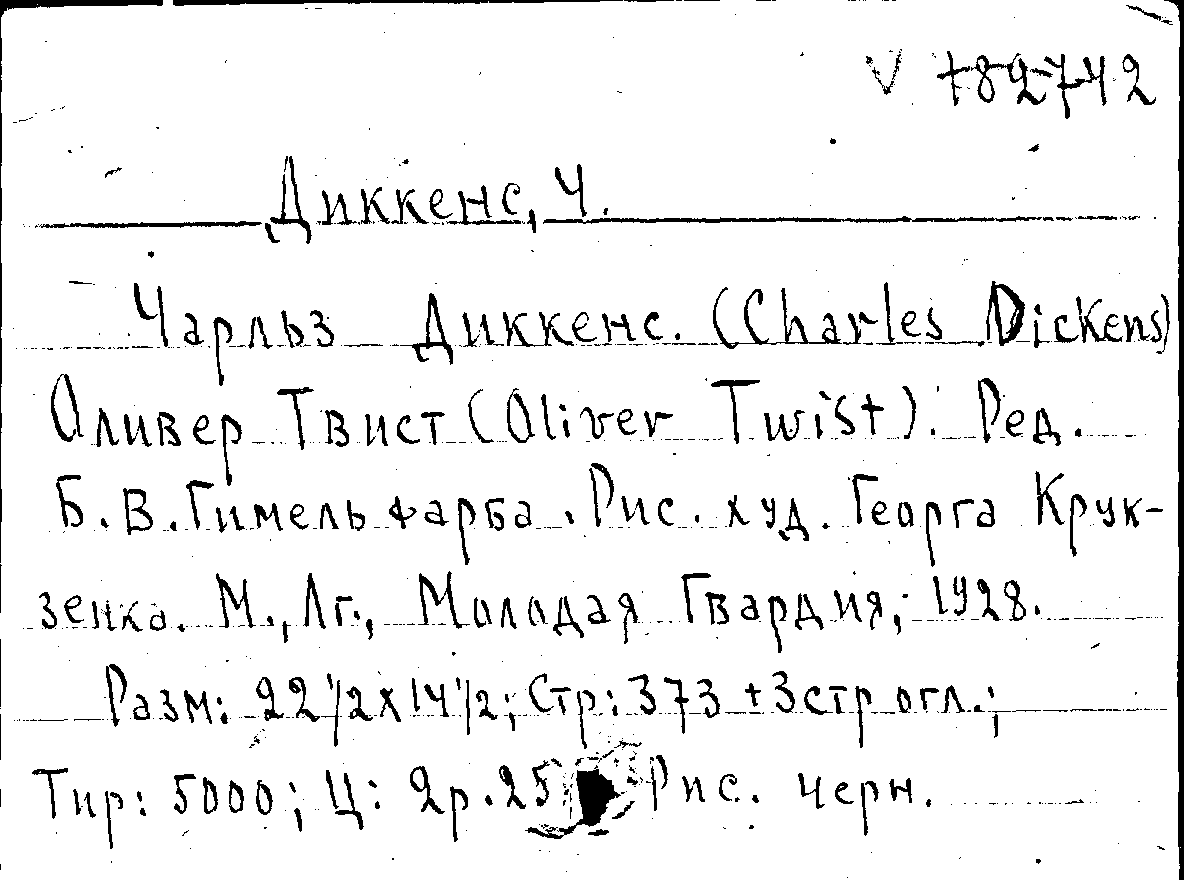 V 782742
Диккенс, Ч.
Чарльз Диккенс. (Charles Dickens)
Оливер Твист (Oliver Twist). Ред.
Б.В.Гимельфарба. Рис. худ. Георга Крук-
зенка. М., Лг., Молодая Гвардия, 1928.
Разм: 22 1/2 x 14 1/2; Стр: 373 + 3 стр огл.;
Тир: 5000; Ц: 2р.25 Рис. черн.